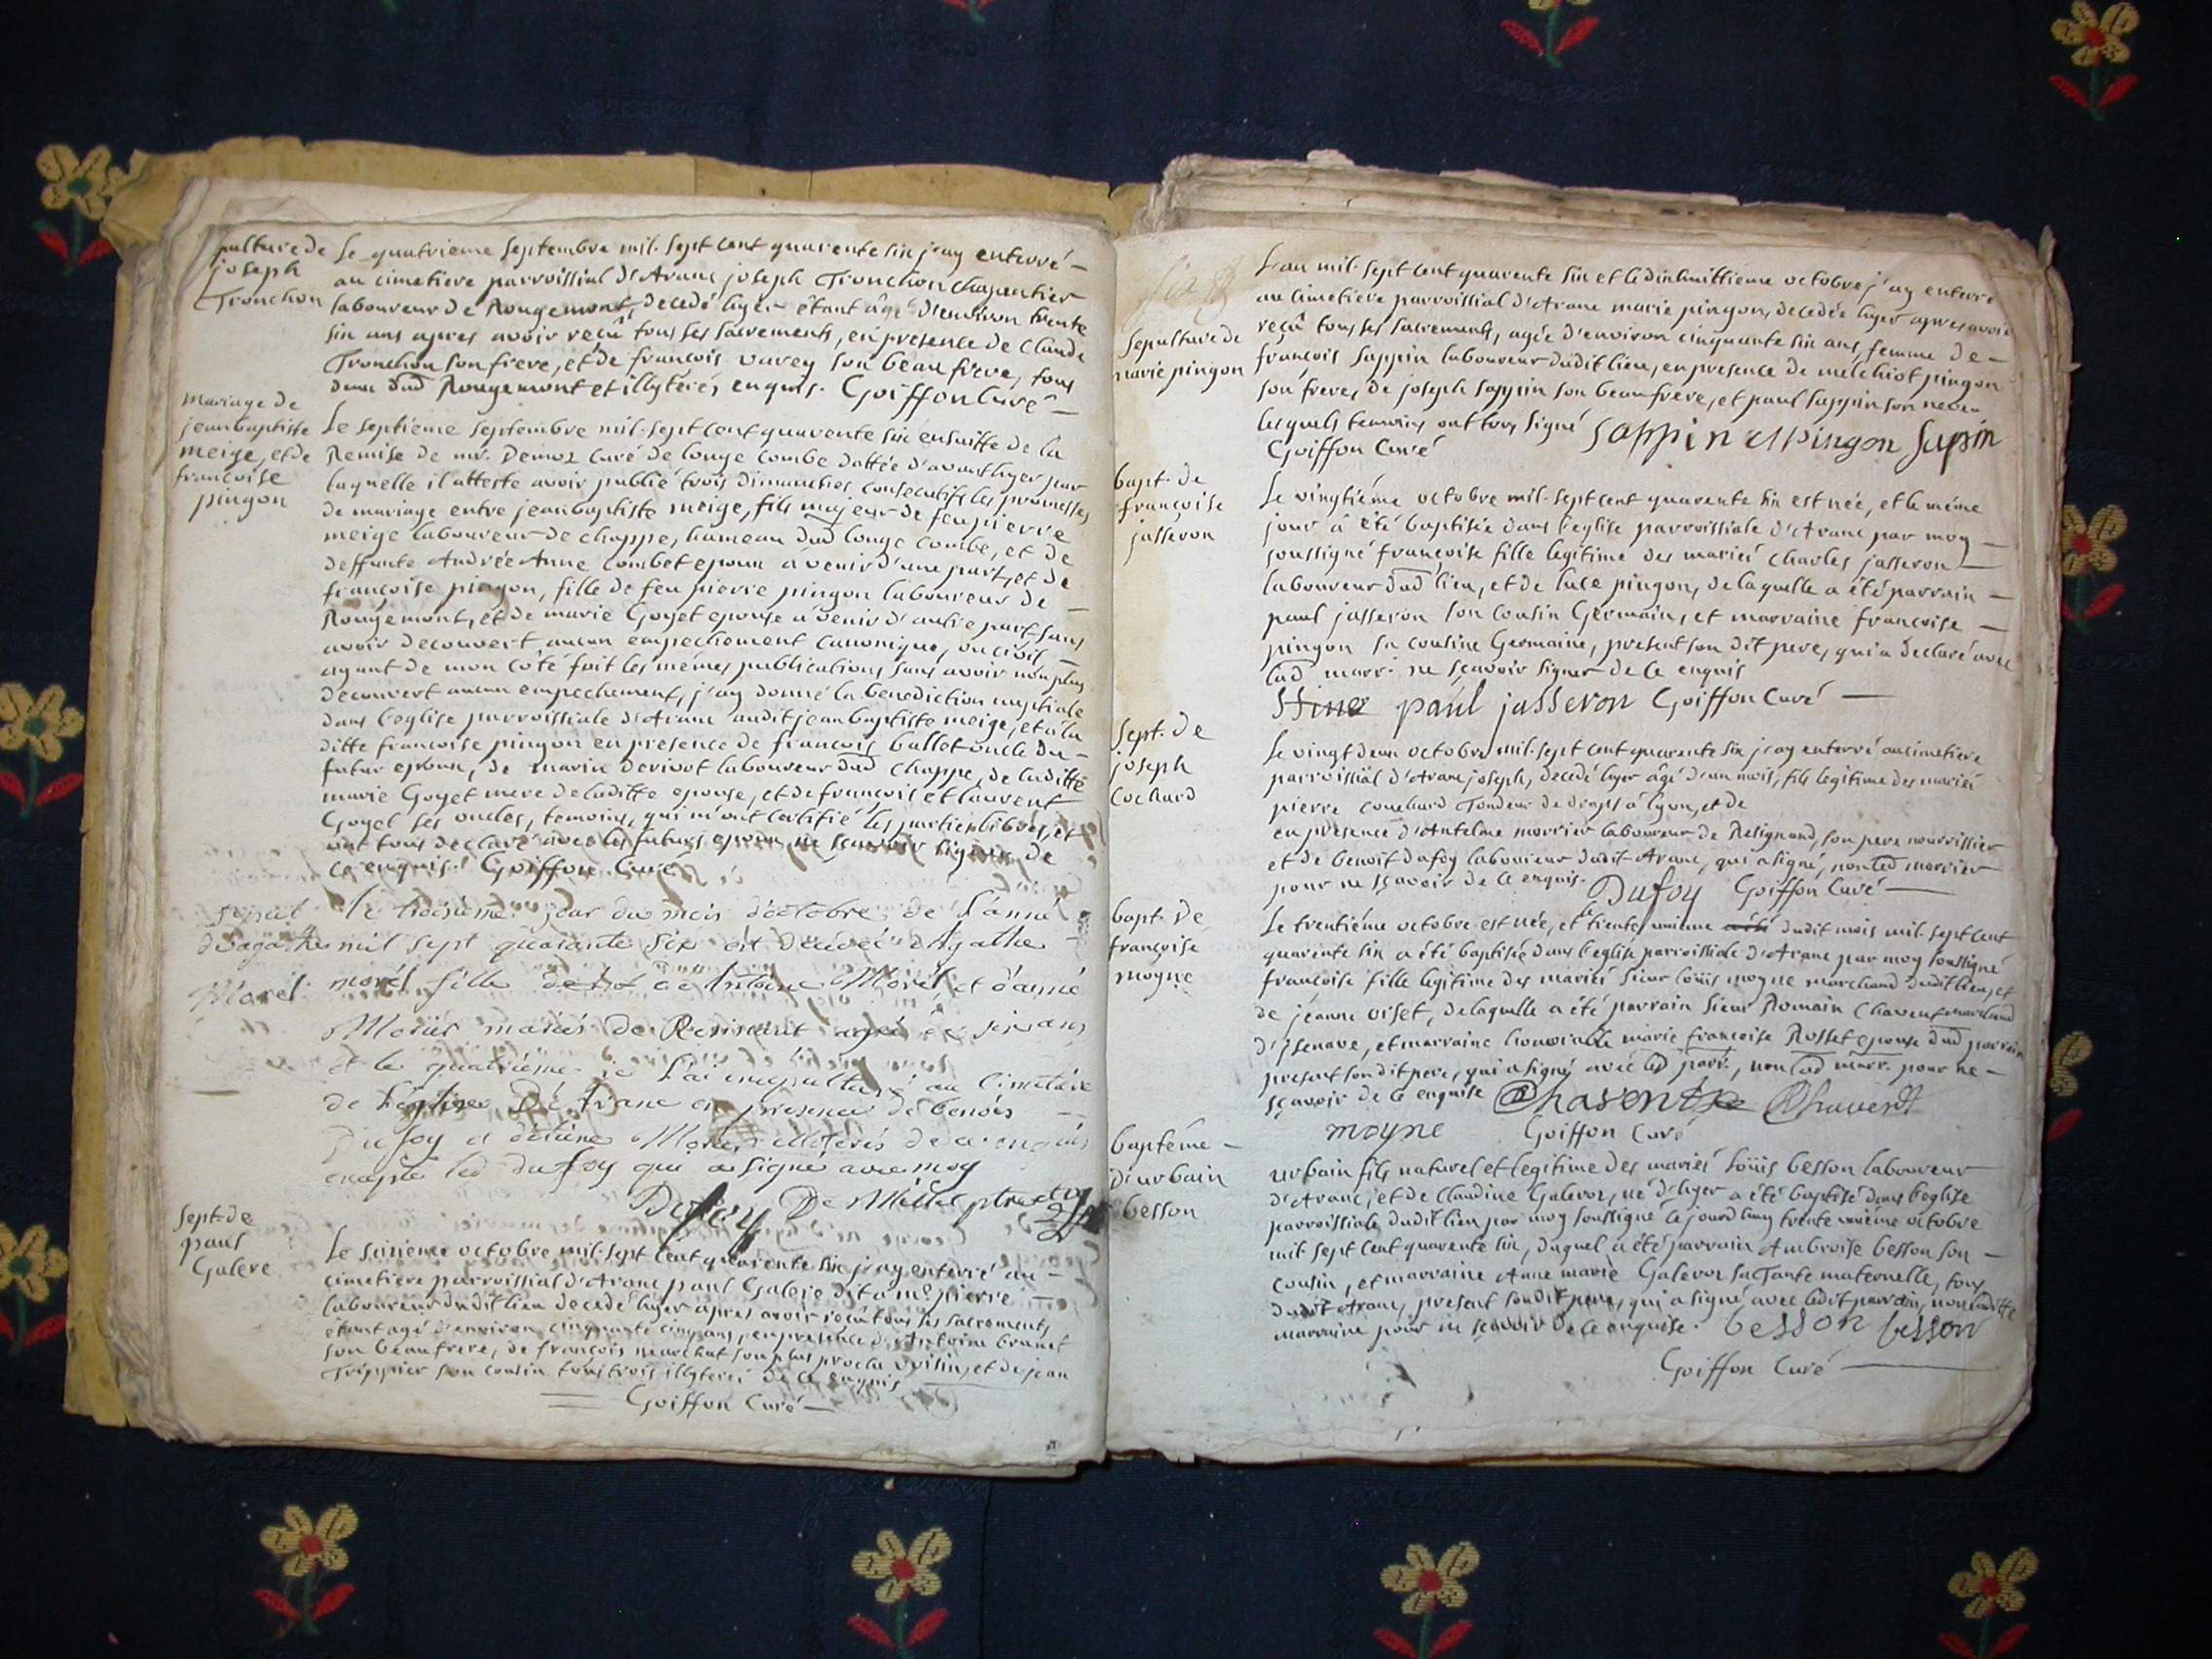 sepulture de
joseph
Tronchon
Le quatrieme septembre mil sept cent quarente six j'ay enterré
au cimetiere parroissial d'Aranc joseph Tronchon charpentier
laboureur de Rougemont, decedé hyer étant âgé d'environ trente
six ans apres avoir reçû tous ses sacrements, en presence de Claude
Tronchon son frere, et de françois varey son beau frere, tous
deux dud Rougemont et illyterés enquis. Goiffon Curé
mariage de
jean baptiste
meige, et de
françoise
pingon
Le septieme septembre mil sept cent quarente six ensuitte de la
Remise de mr. Demoz Curé de longe combe dattée d'avant hyer par
laquelle il atteste avoir publié trois dimanches consecutifs les promesses
de mariage entre jean baptiste meige, fils majeur de feu pierre
meige laboureur de chappe, hameau dud longe combe, et de
deffunte Andrée Anne Combet epoux à venir d'une part, et de
françoise pingon, fille de feu pierre pingon laboureur de
Rougemont, et de marie Goyet epouse à venir d'autre part sans
avoir decouvert aucun empechement canonique, ou civil
ayant de mon côté fait les mêmes publications sans avoir non plus
decouvert aucun empechement, j'ay donné la benediction nuptiale
dans l'eglise parroissiale d'Aranc audit jean baptiste meige, et à la
ditte françoise pingon en presence de françois ballet oncle du
futur epoux, de marin derivot laboureur dud chappe, de laditte
marie Goyet mere de laditte epouse, et de françois et laurent
Goyet ses oncles, temoins, qui m'ont certifié les parties libres, et
ont tous declaré avec les futurs epoux ne sçavoir signer de
ce enquis. Goiffon Curé
d'agathe
Morel
le troisieme jour du mois d'octobre de l'anné
mil sept quarante six est decedeé Agathe
morel fille de Antoine Morel et d'anné
mariés de Resinant ageé de six ans
et le quatrieme je l'ai au Cimetiere
de l'eglise D'Aranc en presence de benois
Dufoy et d'etiene Morel illiterés de ce enquis
excepté led dufoy qui a signé avec moy
Dufoy De Millet ptre
sept. de
paul
Galere
Le seizieme octobre mil sept cent quarente six j'ay enterré au
cimetiere parroissial d'Aranc paul Galere dit à me pierre
laboureur dudit lieu decedé hyer apres avoir reçû tous ses sacrements
étant agé d'environ cinquante cinq ans, en presence d'Antoine brunet
son beau frere, de françois marchat son plus proche voisin, et de jean
Trippier son cousin tous trois illyterés de ce enquis
Goiffon Curé
sepulture de
marie pingon
L'an mil sept cent quarente six et le dixhuittieme octobre j'ay enterré
au cimetiere parroissial d'Aranc marie pingon, decedée hyer apres avoir
reçû tous ses sacrements, agée d'environ cinquante six ans, femme de
françois sappin laboureur dudit lieu, en presence de melchiot pingon
son frere, de joseph sappin son beaufrere, et paul sappin son neveu
lesquels temoins ont tous signé sappin M pingon sapin
Goiffon Curé
bapt. de
françoise
jasseron
Le vingtiéme octobre mil sept cent quarente six est née, et le méme
jour a été baptisée dans l'eglise parroissiale d'Aranc par moy
soussigné françoise fille legitime des mariés Charles jasseron
laboureur dud lieu, et de luce pingon, de laquelle a été parrain
paul jasseron son cousin Germain, et marraine françoise
pingon sa cousine Germaine, present son dit pere, qui a declaré avec
lad marr. ne sçavoir signer de ce enquis
paul jasseron Goiffon Curé
sept. de
joseph
Cochard
Le vingt deux octobre mil sept cent quarente six j'ay enterré au cimetiere
parroissial d'Aranc joseph, decedé hyer âgé d'un mois, fils legitime des mariés
pierre couchard Tondeur de draps à lyon, et de
en presence d'Antelme morrier laboureur de Resignand, son pere nourrissier
et de benoit dufoy laboureur dudit Aranc, qui a signé, non led morrier
pour ne sçavoir de ce enquis. Dufoy Goiffon Curé
bapt. de
françoise
moyne
Le trentiéme octobre est née, et le trente unieme dudit mois mil sept cent
quarente six a été baptisée dans l'eglise parroissiale d'Aranc par moy soussigné
françoise fille legitime des mariés sieur loüis moyne marchand dudit lieu, et
de jeanne oiset, de laquelle a été parrain sieur Romain Chavent marchand
d'Isenave, et marraine honorable marie françoise Rosset epouse dud parrain
present son dit pere, qui a signé avec led parr., non lad marr. pour ne
sçavoir de ce enquise Chavent
moyne Goiffon Curé
baptême
d'urbain
besson
urbain fils naturel et legitime des mariés loüis besson laboureur
d'Aranc, et de Claudine Galevoz, né d'hyer a été baptisé dans l'eglise
parroissiale dudit lieu par moy soussigné ce jourd'huy trente uniéme octobre
mil sept cent quarente six, duquel a été parrain Ambroise besson son
cousin, et marraine Anne marie Galevoz sa Tante maternelle, tous
dudit Aranc, present son dit pere, qui a signé avec ledit parrain, non laditte
marraine pour ne sçavoir de ce enquise. besson besson
Goiffon Curé